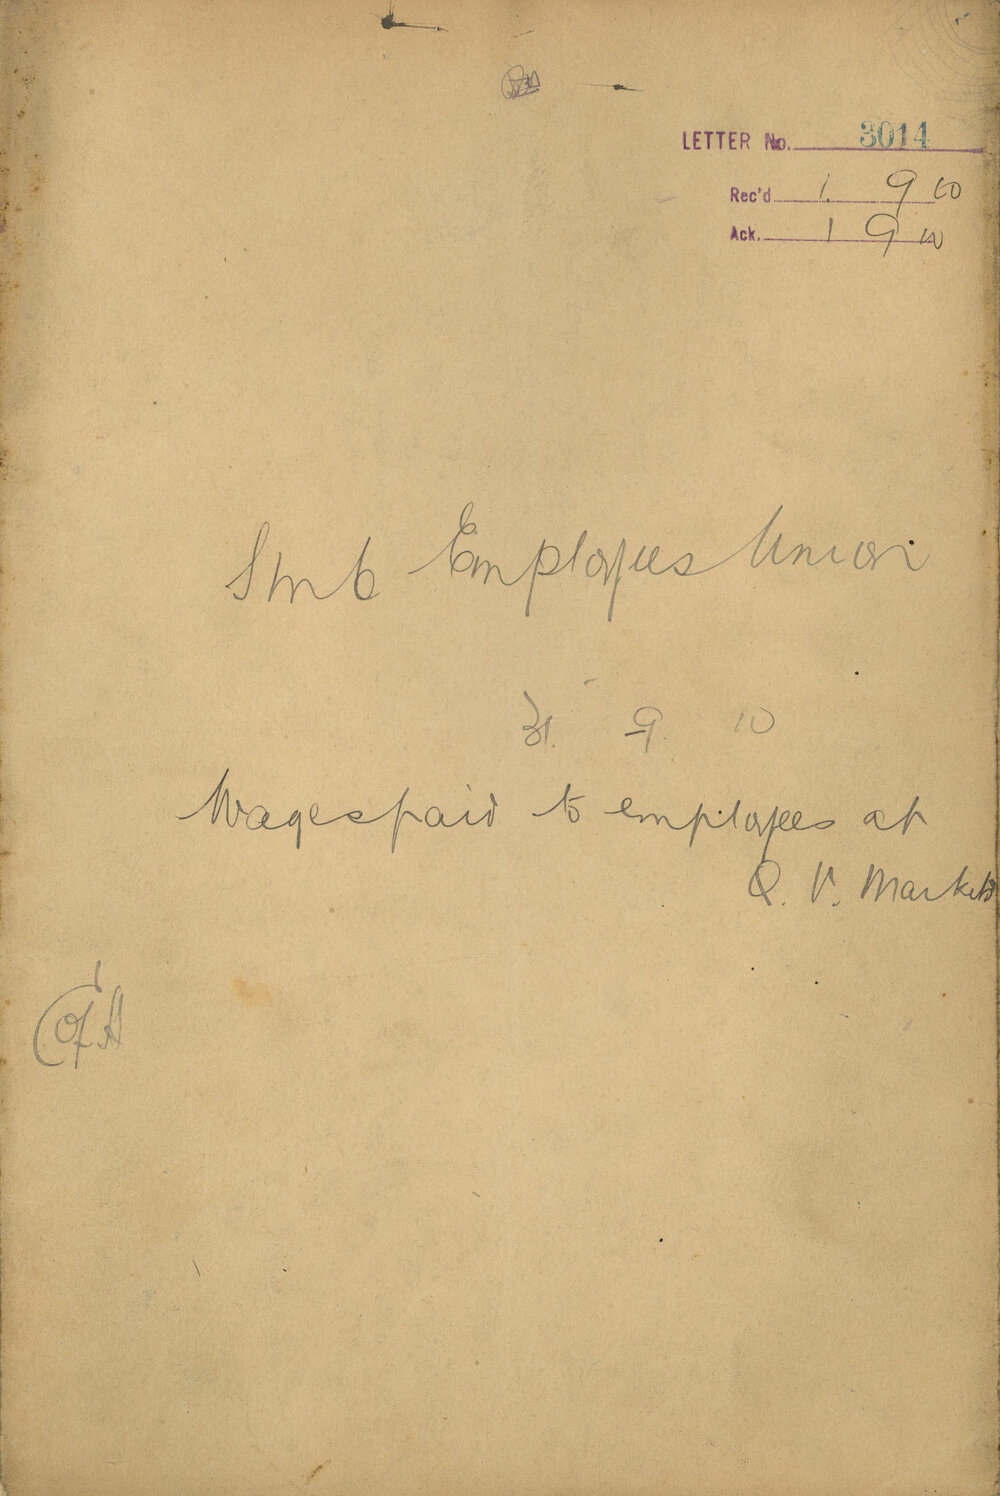 LETTER No. 3014
Rec'd 1. 9 10
Ack. 1 9 10
S M C Employees Union
31. 9 10
Wages paid to employees at
Q. V. Markets
C of A